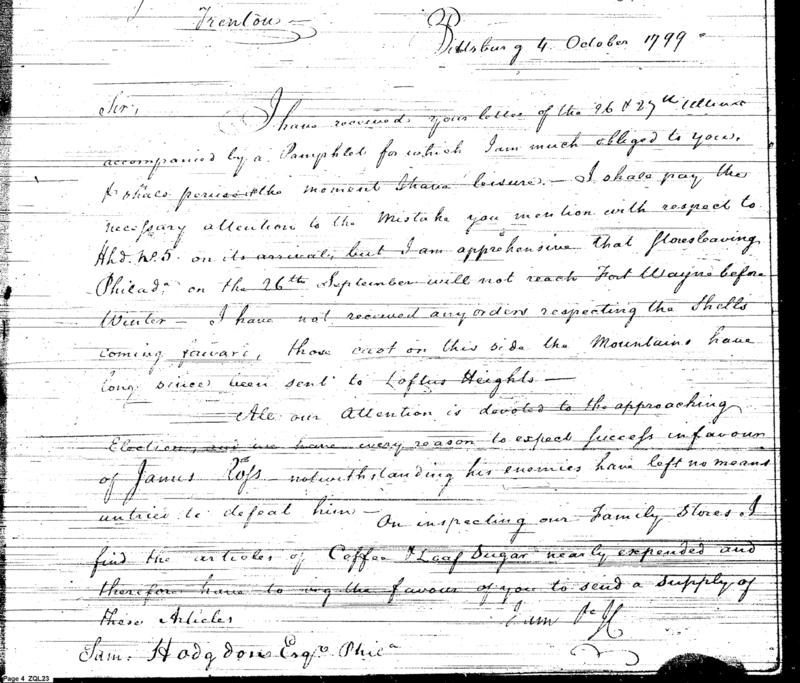 Trenton —
Pittsburg 4 October 1799.
Sir,
I have received your letter of the 26 & 27th Ultimo
accompanied by a Pamphlet for which I am much obliged to you,
& shall peruse the moment I have leisure. — I shall pay the
necessary attention to the Mistake you mention with respect to
Hhd. No. 5. on its arrival, but I am apprehensive that Stores leaving
Philada. on the 26th September will not reach Fort Wayne before
Winter — I have not received any orders respecting the Shells
coming forward, those cast on this side the Mountains have
long since been sent to Loftus Heights —
All our Attention is devoted to the approaching
Election, and we have every reason to expect success in favour
of James Ross notwithstanding his enemies have left no means
untried to defeat him —
On inspecting our Family Stores I
find the articles of Coffee & Loaf Sugar nearly expended and
therefore have to beg the favour of you to send a supply of
these Articles
I am &c
Sam. Hodgdon Esqr. Phila
Page 4 ZQL23